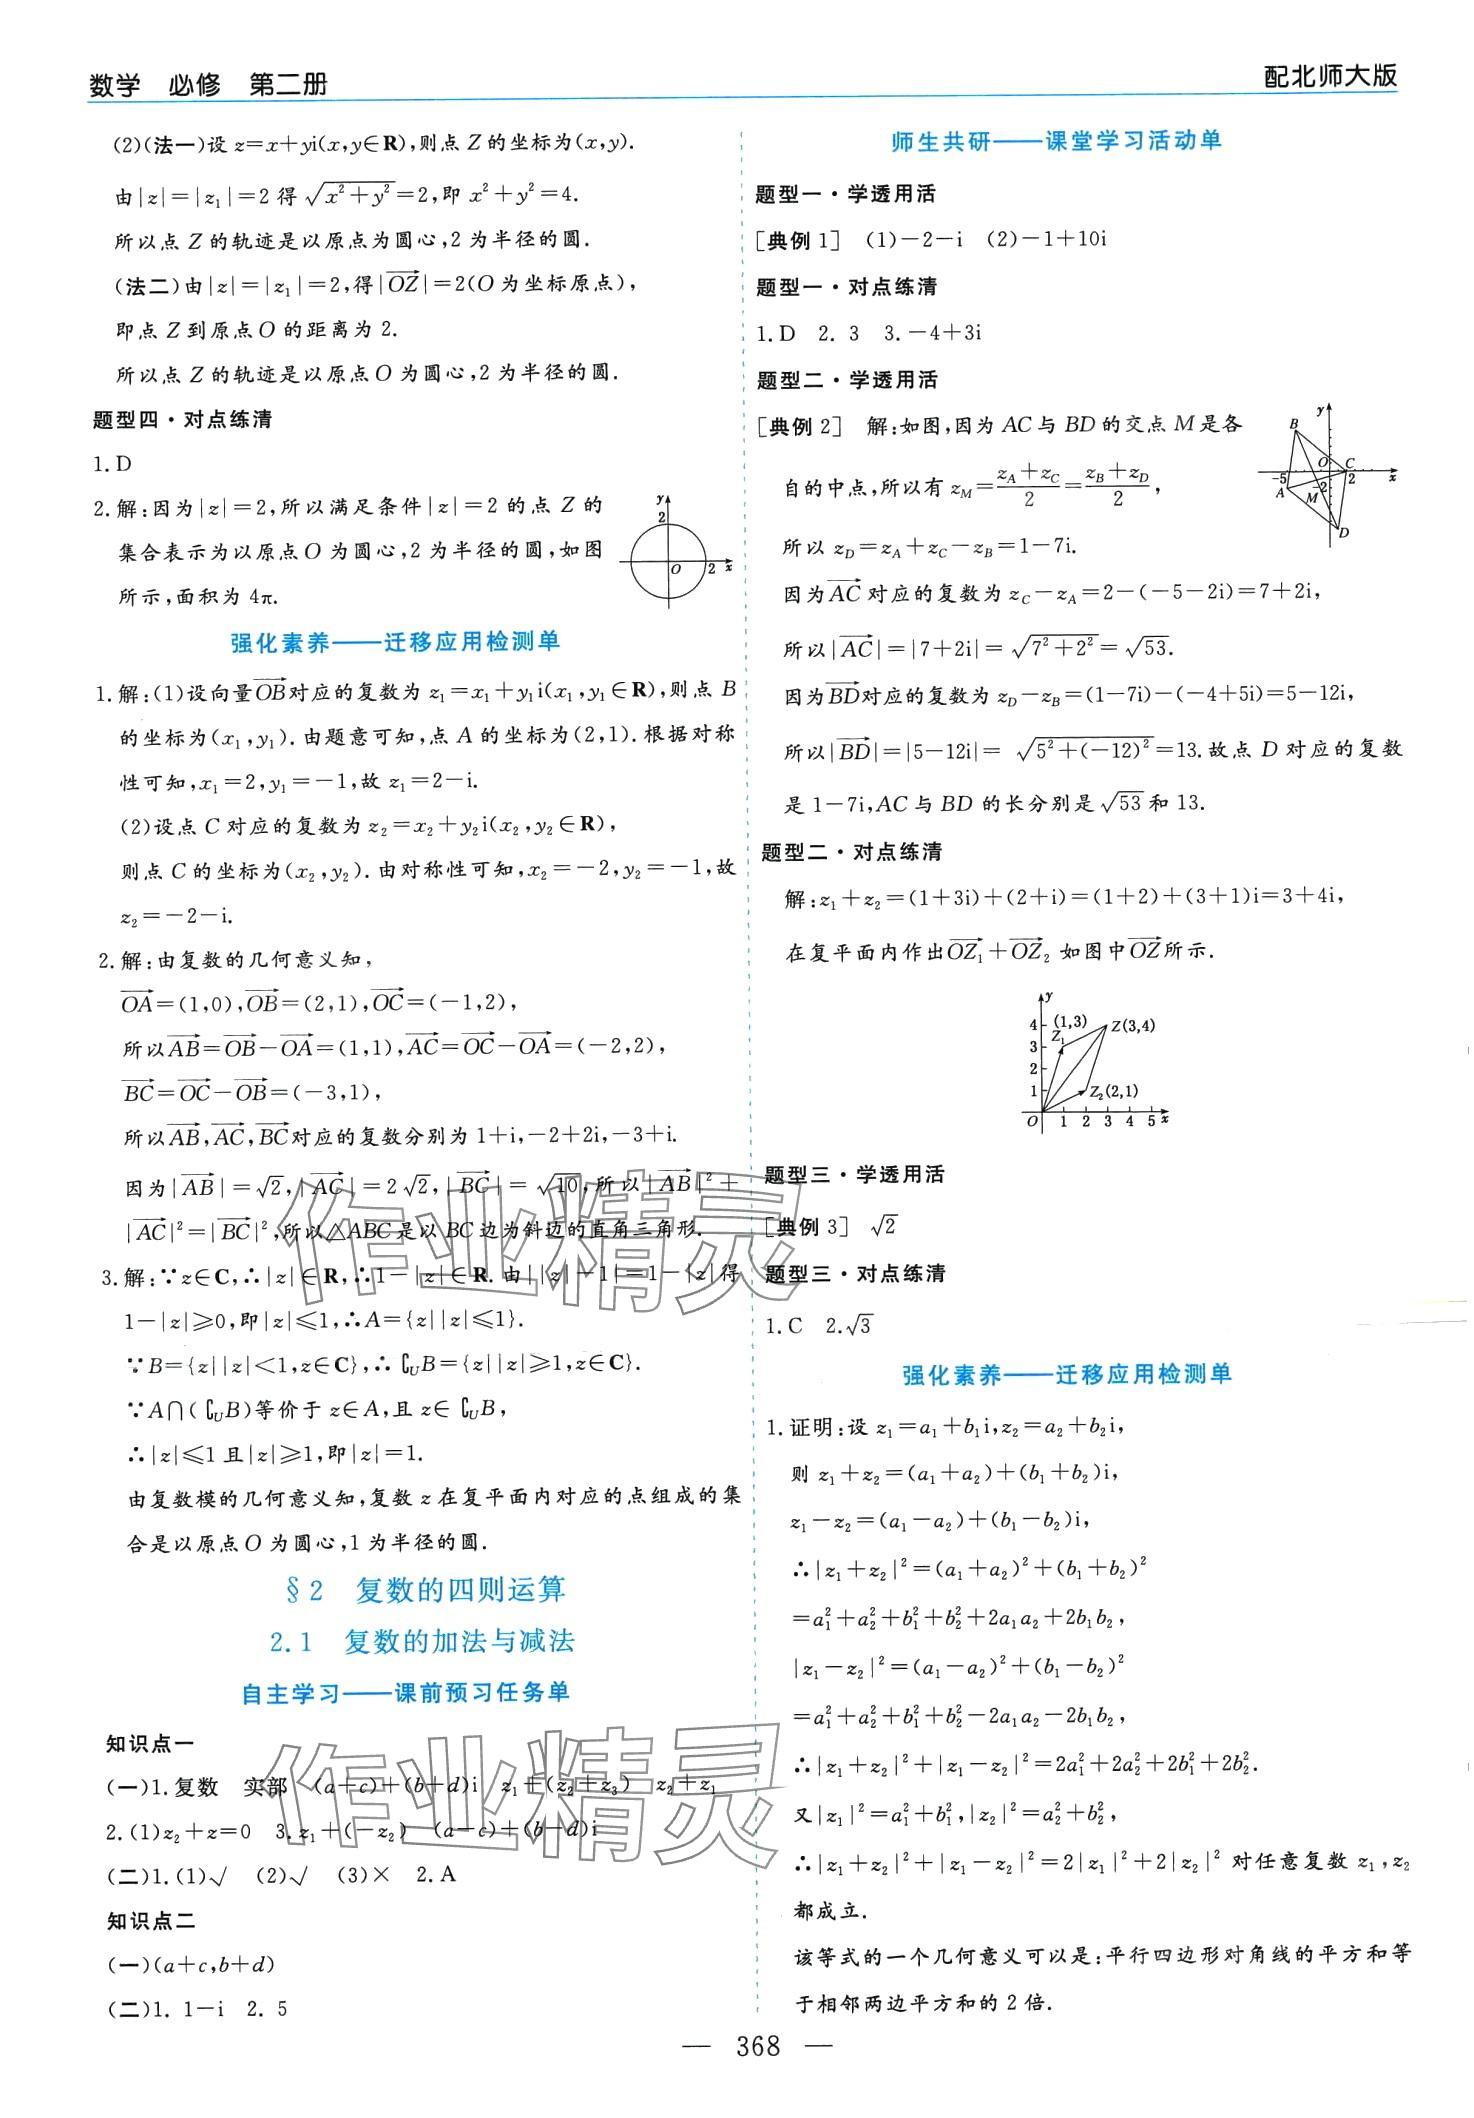 数学 必修 第二册
配北师大版
(2)(法一)设 z=x+yi(x,y∈R),则点 Z 的坐标为(x,y).
由|z|=|z₁|=2 得 √(x²+y²)=2,即 x²+y²=4.
所以点 Z 的轨迹是以原点为圆心,2 为半径的圆.
(法二)由|z|=|z₁|=2,得|OZ→|=2(O 为坐标原点),
即点 Z 到原点 O 的距离为 2.
所以点 Z 的轨迹是以原点 O 为圆心,2 为半径的圆.
题型四·对点练清
1.D
2.解:因为|z|=2,所以满足条件|z|=2 的点 Z 的
集合表示为以原点 O 为圆心,2 为半径的圆,如图
所示,面积为 4π.
y
2
O 2 x
强化素养——迁移应用检测单
1.解:(1)设向量OB→对应的复数为 z₁=x₁+y₁i(x₁,y₁∈R),则点 B
的坐标为(x₁,y₁).由题意可知,点 A 的坐标为(2,1).根据对称
性可知,x₁=2,y₁=-1,故 z₁=2-i.
(2)设点 C 对应的复数为 z₂=x₂+y₂i(x₂,y₂∈R),
则点 C 的坐标为(x₂,y₂).由对称性可知,x₂=-2,y₂=-1,故
z₂=-2-i.
2.解:由复数的几何意义知,
OA→=(1,0),OB→=(2,1),OC→=(-1,2),
所以AB→=OB→-OA→=(1,1),AC→=OC→-OA→=(-2,2),
BC→=OC→-OB→=(-3,1),
所以AB→,AC→,BC→对应的复数分别为 1+i,-2+2i,-3+i.
因为|AB→|=√2,|AC→|=2√2,|BC→|=√10,所以|AB→|²+
|AC→|²=|BC→|²,所以△ABC是以 BC 边为斜边的直角三角形.
3.解:∵z∈C,∴|z|∈R,∴1-|z|∈R.由||z|-1|=1-|z|得
1-|z|≥0,即|z|≤1,∴A={z||z|≤1}.
∵B={z||z|<1,z∈C},∴∁UB={z||z|≥1,z∈C}.
∵A∩(∁UB)等价于 z∈A,且 z∈∁UB,
∴|z|≤1 且|z|≥1,即|z|=1.
由复数模的几何意义知,复数 z 在复平面内对应的点组成的集
合是以原点 O 为圆心,1 为半径的圆.
§2 复数的四则运算
2.1 复数的加法与减法
自主学习——课前预习任务单
知识点一
(一)1.复数 实部 (a+c)+(b+d)i z₁+(z₂+z₃) z₂+z₁
2.(1)z₂+z=0 3.z₁+(-z₂) (a-c)+(b-d)i
(二)1.(1)√ (2)√ (3)× 2.A
知识点二
(一)(a+c,b+d)
(二)1. 1-i 2. 5
师生共研——课堂学习活动单
题型一·学透用活
[典例 1] (1)-2-i (2)-1+10i
题型一·对点练清
1.D 2. 3 3.-4+3i
题型二·学透用活
[典例 2] 解:如图,因为 AC 与 BD 的交点 M 是各
自的中点,所以有 z_M=(z_A+z_C)/2=(z_B+z_D)/2,
所以 z_D=z_A+z_C-z_B=1-7i.
y
B
O C
-5 2 x
A -2
M
D
因为AC→对应的复数为 z_C-z_A=2-(-5-2i)=7+2i,
所以|AC→|=|7+2i|=√(7²+2²)=√53.
因为BD→对应的复数为 z_D-z_B=(1-7i)-(-4+5i)=5-12i,
所以|BD→|=|5-12i|=√(5²+(-12)²)=13.故点 D 对应的复数
是 1-7i,AC 与 BD 的长分别是√53 和 13.
题型二·对点练清
解:z₁+z₂=(1+3i)+(2+i)=(1+2)+(3+1)i=3+4i,
在复平面内作出OZ₁→+OZ₂→ 如图中OZ→所示.
y
4 (1,3) Z(3,4)
3 Z₁
2
1 Z₂(2,1)
O 1 2 3 4 5 x
题型三·学透用活
[典例 3] √2
题型三·对点练清
1.C 2.√3
强化素养——迁移应用检测单
1.证明:设 z₁=a₁+b₁i,z₂=a₂+b₂i,
则 z₁+z₂=(a₁+a₂)+(b₁+b₂)i,
z₁-z₂=(a₁-a₂)+(b₁-b₂)i,
∴|z₁+z₂|²=(a₁+a₂)²+(b₁+b₂)²
=a₁²+a₂²+b₁²+b₂²+2a₁a₂+2b₁b₂,
|z₁-z₂|²=(a₁-a₂)²+(b₁-b₂)²
=a₁²+a₂²+b₁²+b₂²-2a₁a₂-2b₁b₂,
∴|z₁+z₂|²+|z₁-z₂|²=2a₁²+2a₂²+2b₁²+2b₂².
又|z₁|²=a₁²+b₁²,|z₂|²=a₂²+b₂²,
∴|z₁+z₂|²+|z₁-z₂|²=2|z₁|²+2|z₂|² 对任意复数 z₁,z₂
都成立.
该等式的一个几何意义可以是:平行四边形对角线的平方和等
于相邻两边平方和的 2 倍.
— 368 —
作业精灵
作业精灵